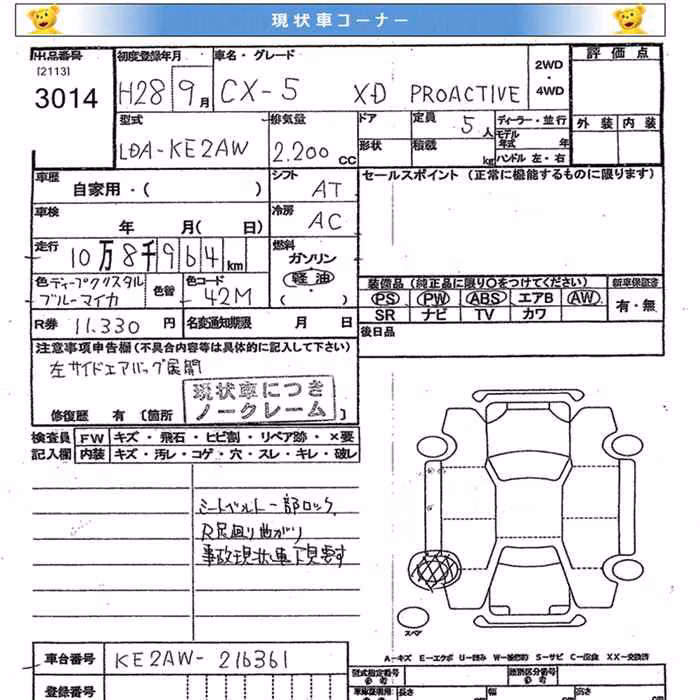 現状車コーナー
出品番号 初度登録年月 車名・グレード 評価点
[2113]
3014 H28 9月 CX-5 XD PROACTIVE 2WD・4WD
型式 排気量 ドア 定員 5人 ディーラー・並行 外装 内装
モデル年式 年
LDA-KE2AW 2.200cc 形状 積載 kg ハンドル 左・右
車歴 自家用・( ) シフト AT セールスポイント(正常に機能するものに限ります)
車検 年 月( 日) 冷房 AC
走行 10万8千964km 燃料 ガソリン
軽油
( ・ )
色 ディープクリスタルブルーマイカ 色替 色コード 42M
装備品(純正品に限り〇をつけてください) 新車保証書
PS PW ABS エアB AW 有・無
SR ナビ TV カワ
R券 11.330円 名変通知期限 月 日 後日品
注意事項申告欄(不具合内容等は具体的に記入して下さい)
左サイドエアバッグ展開
現状車につき
ノークレーム
修復歴 有[箇所 ]
検査員 FW キズ・飛石・ヒビ割・リペア跡・×要
記入欄 内装 キズ・汚レ・コゲ・穴・スレ・キレ・破レ
シートベルト一部ロック
R足廻り曲がり
事故現状車下見要す
スペア
A-キズ E-エクボ U-凹み W-補修跡 S-サビ C-腐食 XX-交換済
車台番号 KE2AW-216361
型式指定番号 類別区分番号
参考 参考
登録番号
長さ 幅 高さ